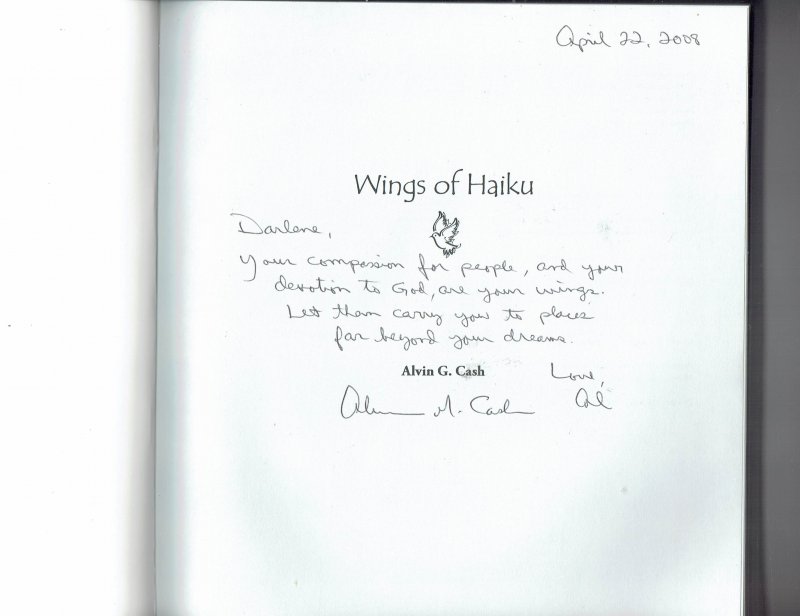 April 22, 2008
Wings of Haiku
Darlene,
Your compassion for people, and your
devotion to God, are your wings.
Let them carry you to places
far beyond your dreams.
Alvin G. Cash
Love,
Al
Alvin G. Cash